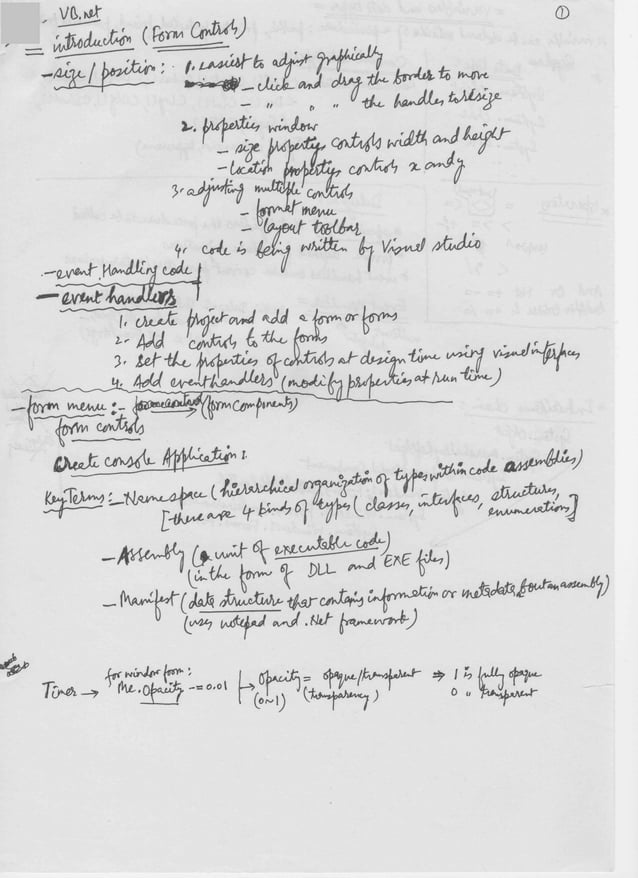 VB.net
①
= introduction (Form Controls)
- size/position : 1. easiest to adjust graphically
- click and drag the border to move
- " " " " the handles to resize
2. properties window
- size property controls width and height
- location property controls x and y
3. adjusting multiple controls
- format menu
- layout toolbar
4. code is being written by Visual studio
- event Handling code
- event handlers
1. create project and add a form or forms
2. Add controls to the forms
3. set the properties of controls at design time using visual interfaces
4. Add event handlers (modify properties at run time)
- form menu :- (form components)
form controls
Create console Application :
Key Terms :- Namespace (hierarchical organization of types within code assemblies)
[there are 4 kinds of types (classes, interfaces, structures,
enumerations)]
- Assembly (a unit of executable code)
(in the form of DLL and EXE files)
- Manifest (data structure that contains information or metadata about an assembly)
(uses notepad and .Net framework)
for window form :
Timer → Me.Opacity -= 0.01 → Opacity = opaque/transparent ⇒ 1 is fully opaque
(0~1) (transparency) 0 " transparent